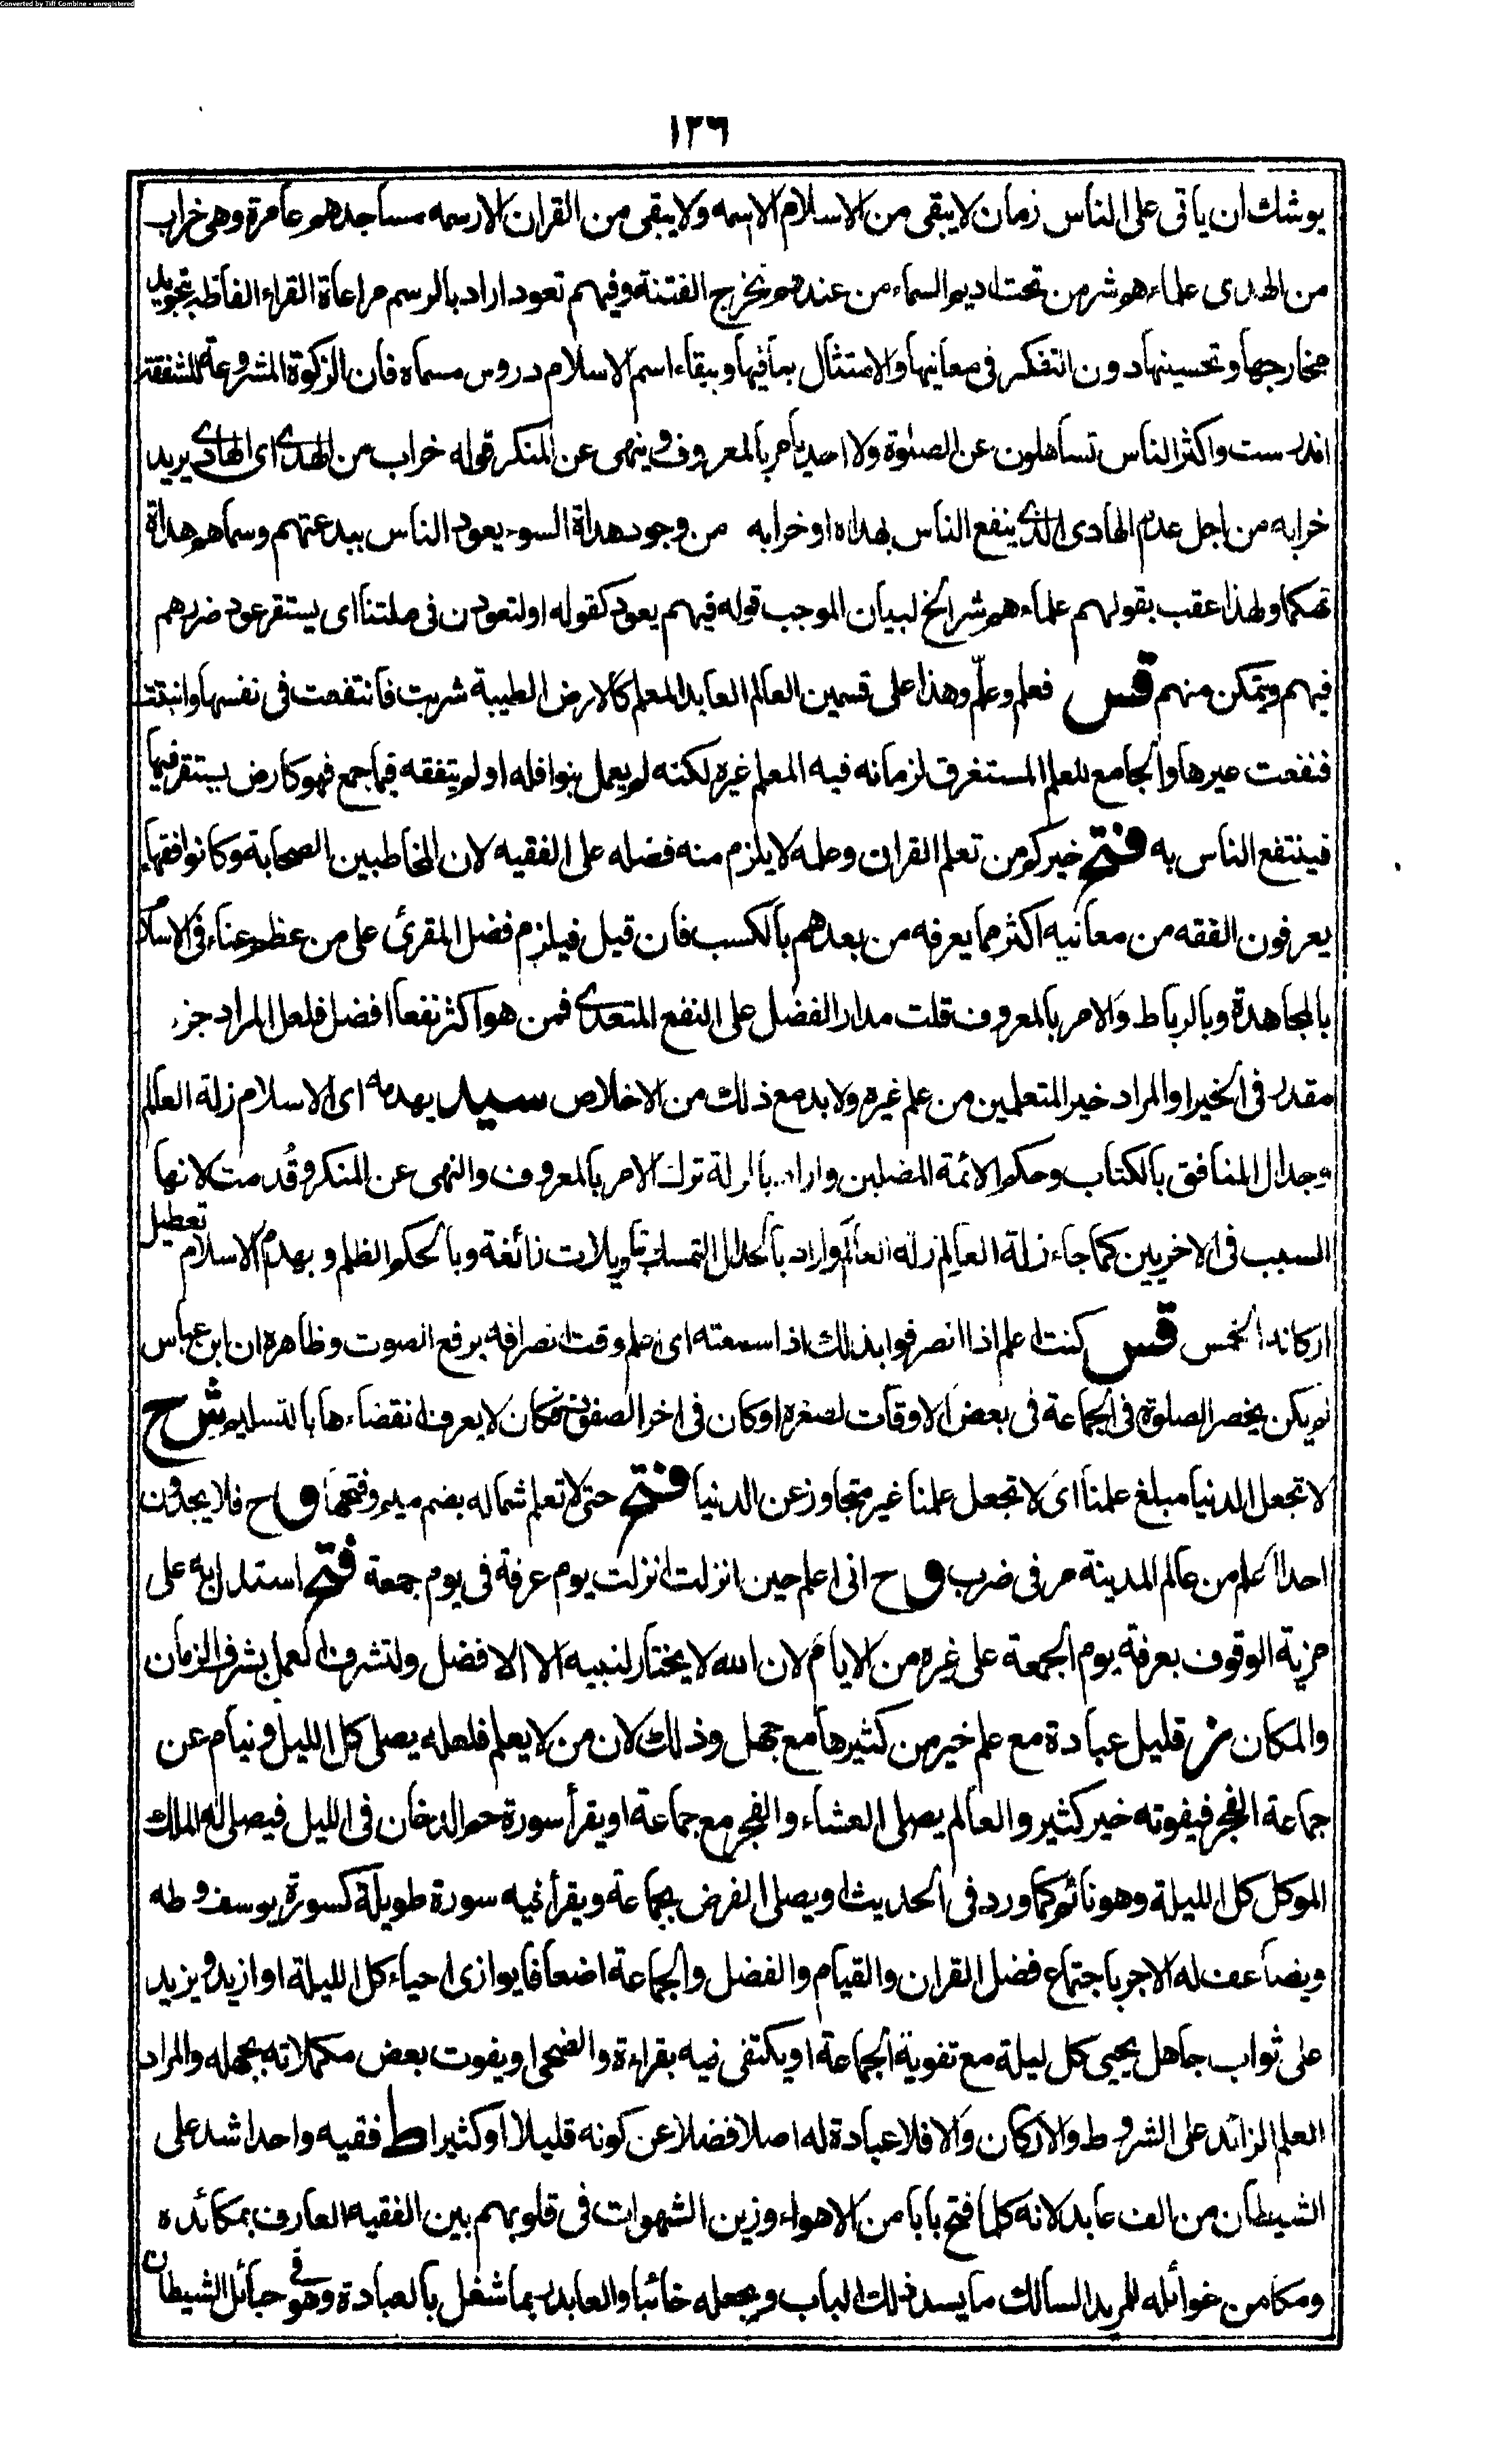 Converted by Tiff Combine - unregistered
١٢٦
يوشك ان ياتى على الناس زمان لا يبقى من الاسلام الا اسمه ولا يبقى من القران الا رسمه مساجدهم عامرة وهى خراب
من الهدى علماءهم شر من تحت اديم السماء من عندهم تخرج الفتنة وفيهم تعود اراد بالرسم مراعاة القراء الفاظه بتجويد
مخارجها وتحسينها دون التفكر فى معانيها والامتثال بما فيها وببقاء اسم الاسلام دروس مسماه فان الزكوة المشروعة للشفقة
اندرست واكثر الناس تساهلون عن الصلوة ولا احد يامر بالمعروف وينهى عن المنكر قوله خراب من الهدى اى الهادى يريد
خرابه من اجل عدم الهادى الذى ينفع الناس بهداه او خرابه من وجود هداة السوء يعود الناس ببدعتهم وسماهم هداة
تهكما ولهذا عقب بقولهم علماءهم شر الخ لبيان الموجب قوله فيهم يعود كقوله او لتعودن فى ملتنا اى يستقر عود ضررهم
فيهم ويتمكن منهم قس فعلم وعلّم وهذا على قسمين العالم العابد المعلم كالارض الطيبة شربت فانتفعت فى نفسها وانبتت
فنفعت غيرها والجامع للعلم المستغرق لزمانه فيه المعلم غيره لكنه لم يعمل بنوافله او لم يتفقه فيما جمع فهو كارض يستقر فيها
فينتفع الناس به فتح خيركم من تعلم القران وعلمه لا يلزم منه فضله على الفقيه لان المخاطبين الصحابة وكانوا فقهاء
يعرفون الفقه من معانيه اكثر مما يعرفه من بعدهم بالكسب فان قيل فيلزم فضل المقرئ على من عظم عناء فى الاسلام
بالمجاهدة وبالرباط والامر بالمعروف قلت مدار الفضل على النفع المتعدى فمن هو اكثر نفعا افضل فلعل المراد جزء
مقدر فى الخير او المراد خير المتعلمين من علم غيره ولا بد مع ذلك من الاخلاص سيد يهدمه اى الاسلام زلة العالم
وجدال المنافق بالكتاب وحكم الائمة المضلين واراد بالزلة ترك الامر بالمعروف والنهى عن المنكر وقُدمت لانها
السبب فى الاخريين كما جاء زلة العالِم زلة العالَم واراد بالجدال التمسك بتاويلات زائغة وبالحكم الظلم وبهدم الاسلام تعطيل
اركانه الخمس قس كنت اعلم اذا انصرفوا بذلك اذا سمعته اى اعلم وقت انصرافه برفع الصوت وظاهره ان ابن عباس
لم يكن يحضر الصلوة فى الجماعة فى بعض الاوقات لصغره او كان فى اخر الصفوف فكان لا يعرف انقضاءها بالتسليم شرح
لا تجعل الدنيا مبلغ علمنا اى لا تجعل علمنا غير متجاوز عن الدنيا فتح حتى لا تعلم شماله بضم ميم وفتحها و ح فلا يجدون
احدا اعلم من عالم المدينة مر فى ضرب و ح انى اعلم حين انزلت انزلت يوم عرفة فى يوم جمعة فتح استدل به على
مزية الوقوف بعرفة يوم الجمعة على غيره من الايام لان الله لا يختار لنبيه الا الافضل ولتشرف العمل بشرف الزمان
والمكان قليل عبادة مع علم خير من كثيرها مع جهل وذلك لان من لا يعلم فلعله يصلى كل الليل وينام عن
جماعة الفجر فيفوته خير كثير والعالم يصلى العشاء والفجر مع جماعة او يقرأ سورة حم الدخان فى الليل فيصلى له الملك
الموكل كل الليلة وهو نائم كما ورد فى الحديث او يصلى الفرض بجماعة ويقرأ فيه سورة طويلة كسورة يوسف وطه
ويضاعف له الاجر باجتماع فضل القران والقيام والفضل والجماعة اضعافا يوازى احياء كل الليلة او ازيد ويزيد
على ثواب جاهل يحيى كل ليلة مع تفوية الجماعة او يكتفى فيه بقراءة والضحى او يفوت بعض مكملاته بجهله والمراد
العلم الزائد على الشروط والاركان والا فلا عبادة له اصلا فضلا عن كونه قليلا او كثيرا ط فقيه واحد اشد على
الشيطان من الف عابد لانه كلما فتح بابا من الاهواء وزين الشهوات فى قلوبهم بين الفقيه العارف بمكائده
ومكامن غوائله للمريد السالك ما يسد ذلك الباب ويجعله خائبا والعابد ربما شغل بالعبادة وهو فى حبائل الشيطان